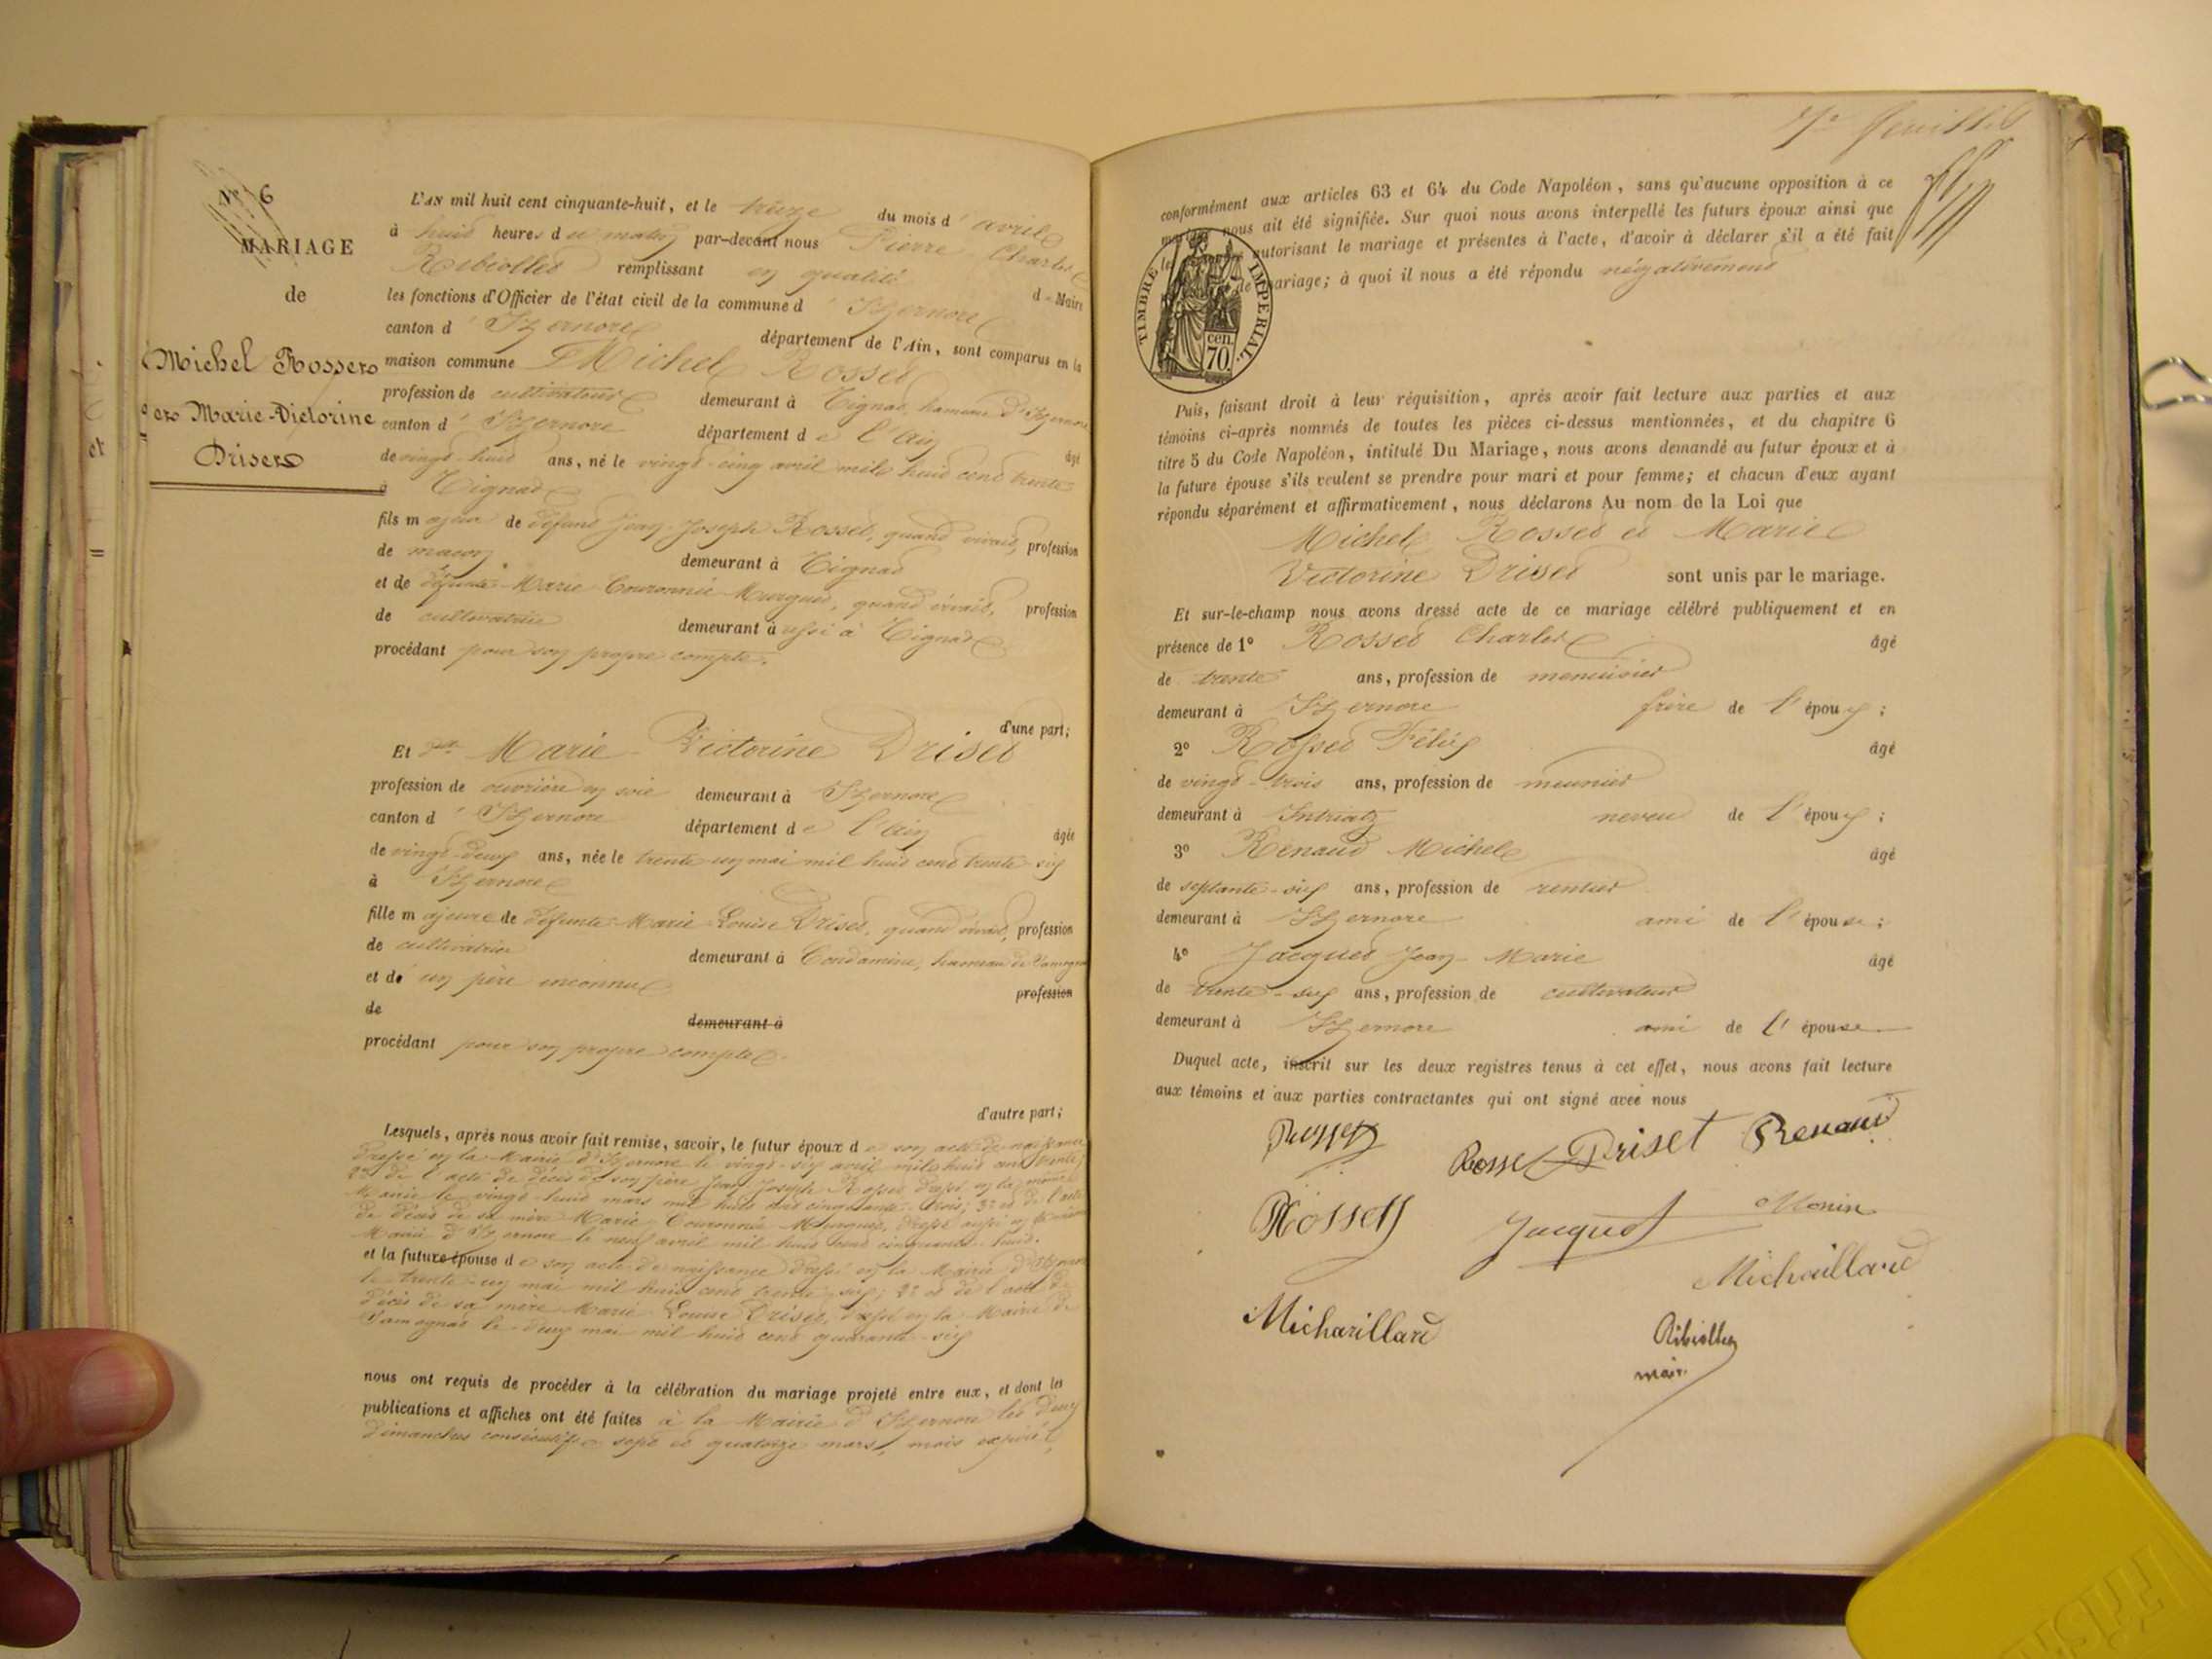 Nº 6
MARIAGE
de
Michel Rosset
et Marie-Victorine
Driset
L'AN mil huit cent cinquante-huit, et le treize du mois d'avril
à huit heures du matin par-devant nous Pierre Charles
Ribiollet remplissant en qualité d Maire
les fonctions d'Officier de l'état civil de la commune d'Izernore
canton d'Izernore département de l'Ain, sont comparus en la
maison commune Michel Rosset
profession de cultivateur demeurant à Tignat, hameau d'Izernore
canton d'Izernore département de l'Ain âgé
de vingt-huit ans, né le vingt-cinq avril mil huit cent trente
à Tignat
fils majeur de défunt Jean-Joseph Rosset, quand vivait, profession
de maçon demeurant à Tignat
et de défunte Marie Couronnée Murguet, quand vivait, profession
de cultivatrice demeurant aussi à Tignat
procédant pour son propre compte.
d'une part;
Et Marie-Victorine Driset
profession de ouvrière en soie demeurant à Izernore
canton d'Izernore département de l'Ain âgée
de vingt-deux ans, née le trente un mai mil huit cent trente-six
à Izernore
fille majeure de défunte Marie Louise Driset, quand vivait, profession
de cultivatrice demeurant à Condamine, hameau de
et de un père inconnu profession
de demeurant à
procédant pour son propre compte.
d'autre part;
Lesquels, après nous avoir fait remise, savoir, le futur époux de son acte de naissance
dressé en la Mairie d'Izernore le vingt-six avril mil huit cent trente;
2º de l'acte de décès de son père Jean-Joseph Rosset dressé en la même
Mairie le vingt-huit mars mil huit cent cinquante-trois; 3º et de l'acte
de décès de sa mère Marie Couronnée Murguet, dressé aussi en
Mairie d'Izernore le neuf avril mil huit cent cinquante-huit.
et la future épouse de son acte de naissance dressé en la Mairie d'Izernore
le trente-un mai mil huit cent trente-six; 2º et de l'acte de
décès de sa mère Marie Louise Driset, dressé en la Mairie de
Samognat le deux mai mil huit cent quarante-six
nous ont requis de procéder à la célébration du mariage projeté entre eux, et dont les
publications et affiches ont été faites à la Mairie d'Izernore les deux
dimanches consécutifs sept et quatorze mars, mois expiré,
7e feuillet
conformément aux articles 63 et 64 du Code Napoléon, sans qu'aucune opposition à ce
mariage nous ait été signifiée. Sur quoi nous avons interpellé les futurs époux ainsi que
les autorisant le mariage et présentes à l'acte, d'avoir à déclarer s'il a été fait
de mariage; à quoi il nous a été répondu négativement
TIMBRE IMPÉRIAL.
70 cen.
Puis, faisant droit à leur réquisition, après avoir fait lecture aux parties et aux
témoins ci-après nommés de toutes les pièces ci-dessus mentionnées, et du chapitre 6
titre 5 du Code Napoléon, intitulé Du Mariage, nous avons demandé au futur époux et à
la future épouse s'ils veulent se prendre pour mari et pour femme; et chacun d'eux ayant
répondu séparément et affirmativement, nous déclarons Au nom de la Loi que
Michel Rosset et Marie
Victorine Driset sont unis par le mariage.
Et sur-le-champ nous avons dressé acte de ce mariage célébré publiquement et en
présence de 1º Rosset Charles âgé
de trente ans, profession de menuisier
demeurant à Izernore frère de l'époux;
2º Rosset Félix âgé
de vingt-trois ans, profession de meunier
demeurant à Intriatz neveu de l'époux;
3º Renaud Michel âgé
de septante-six ans, profession de rentier
demeurant à Izernore ami de l'épouse;
4º Jacquet Jean-Marie âgé
de trente-six ans, profession de cultivateur
demeurant à Izernore ami de l'épouse
Duquel acte, inscrit sur les deux registres tenus à cet effet, nous avons fait lecture
aux témoins et aux parties contractantes qui ont signé avec nous
Rosset Rosset Driset Renaud
Rosset Jacquet Monin
Michaillard
Michaillard Ribiollet
maire